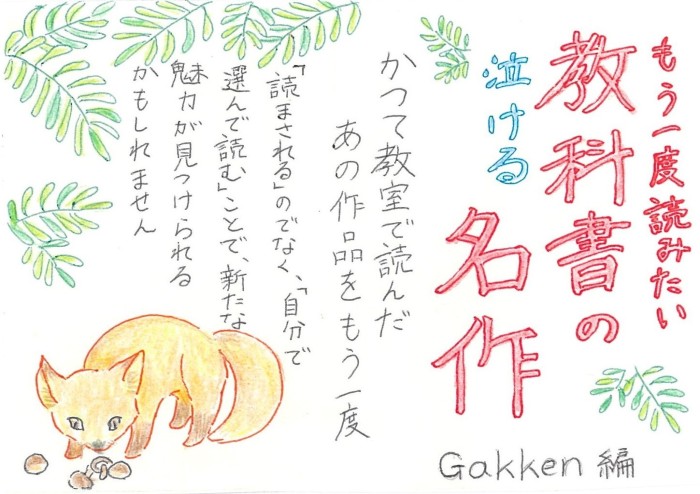 もう一度読みたい
教科書の
泣ける
名作
Gakken 編
かつて教室で読んだ
あの作品をもう一度
「読まされる」のでなく、「自分で
選んで読む」ことで、新たな
魅力が見つけられる
かもしれません